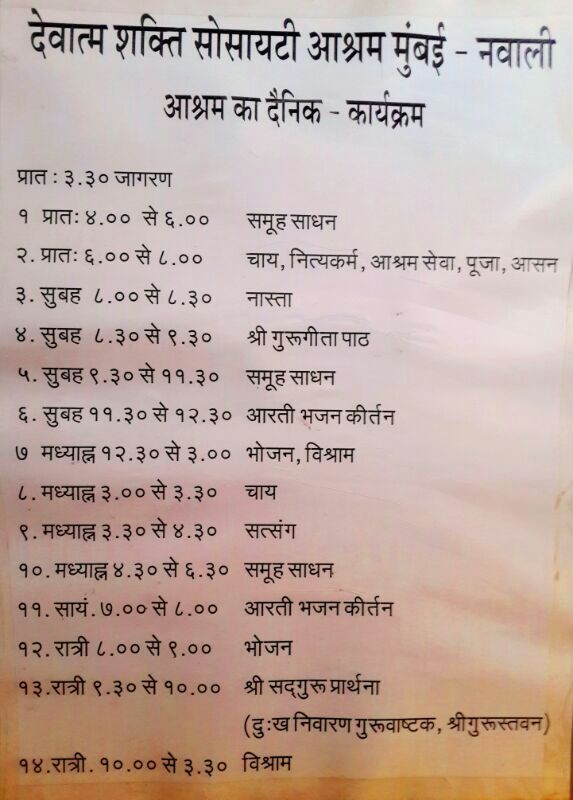 देवात्म शक्ति सोसायटी आश्रम मुंबई - नवाली
आश्रम का दैनिक - कार्यक्रम
प्रात : ३.३० जागरण
१ प्रातः ४.०० से ६.०० समूह साधन
२. प्रातः ६.०० से ८.०० चाय, नित्यकर्म, आश्रम सेवा, पूजा, आसन
३. सुबह ८.०० से ८.३० नास्ता
४. सुबह ८.३० से ९.३० श्री गुरूगीता पाठ
५. सुबह ९.३० से ११.३० समूह साधन
६. सुबह ११.३० से १२.३० आरती भजन कीर्तन
७ मध्याह्न १२.३० से ३.०० भोजन, विश्राम
८. मध्याह्न ३.०० से ३.३० चाय
९. मध्याह्न ३.३० से ४.३० सत्संग
१०. मध्याह्न ४.३० से ६.३० समूह साधन
११. सायं. ७.०० से ८.०० आरती भजन कीर्तन
१२. रात्री ८.०० से ९.०० भोजन
१३. रात्री ९.३० से १०.०० श्री सद्‌गुरू प्रार्थना
(दुःख निवारण गुरूवाष्टक, श्रीगुरूस्तवन)
१४. रात्री. १०.०० से ३.३० विश्राम